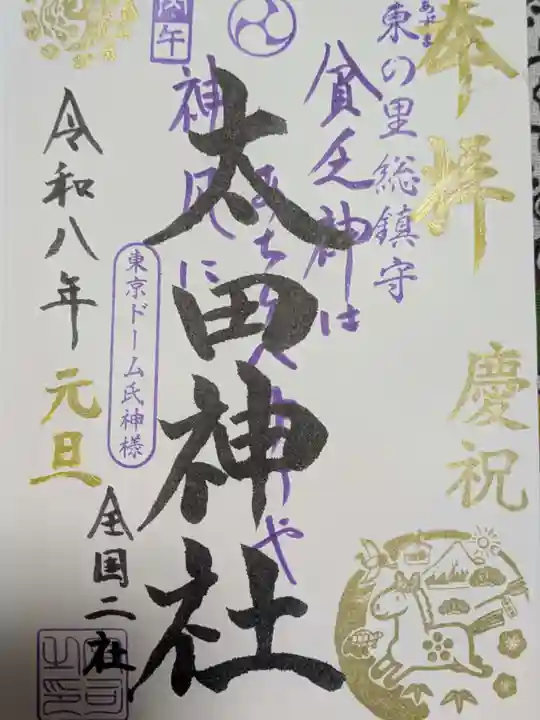 奉拝
慶祝
東の里総鎮守
あずま
貧乏神は
神風に
太田神社
丙午
東京ドーム氏神様
全国二社
令和八年元旦